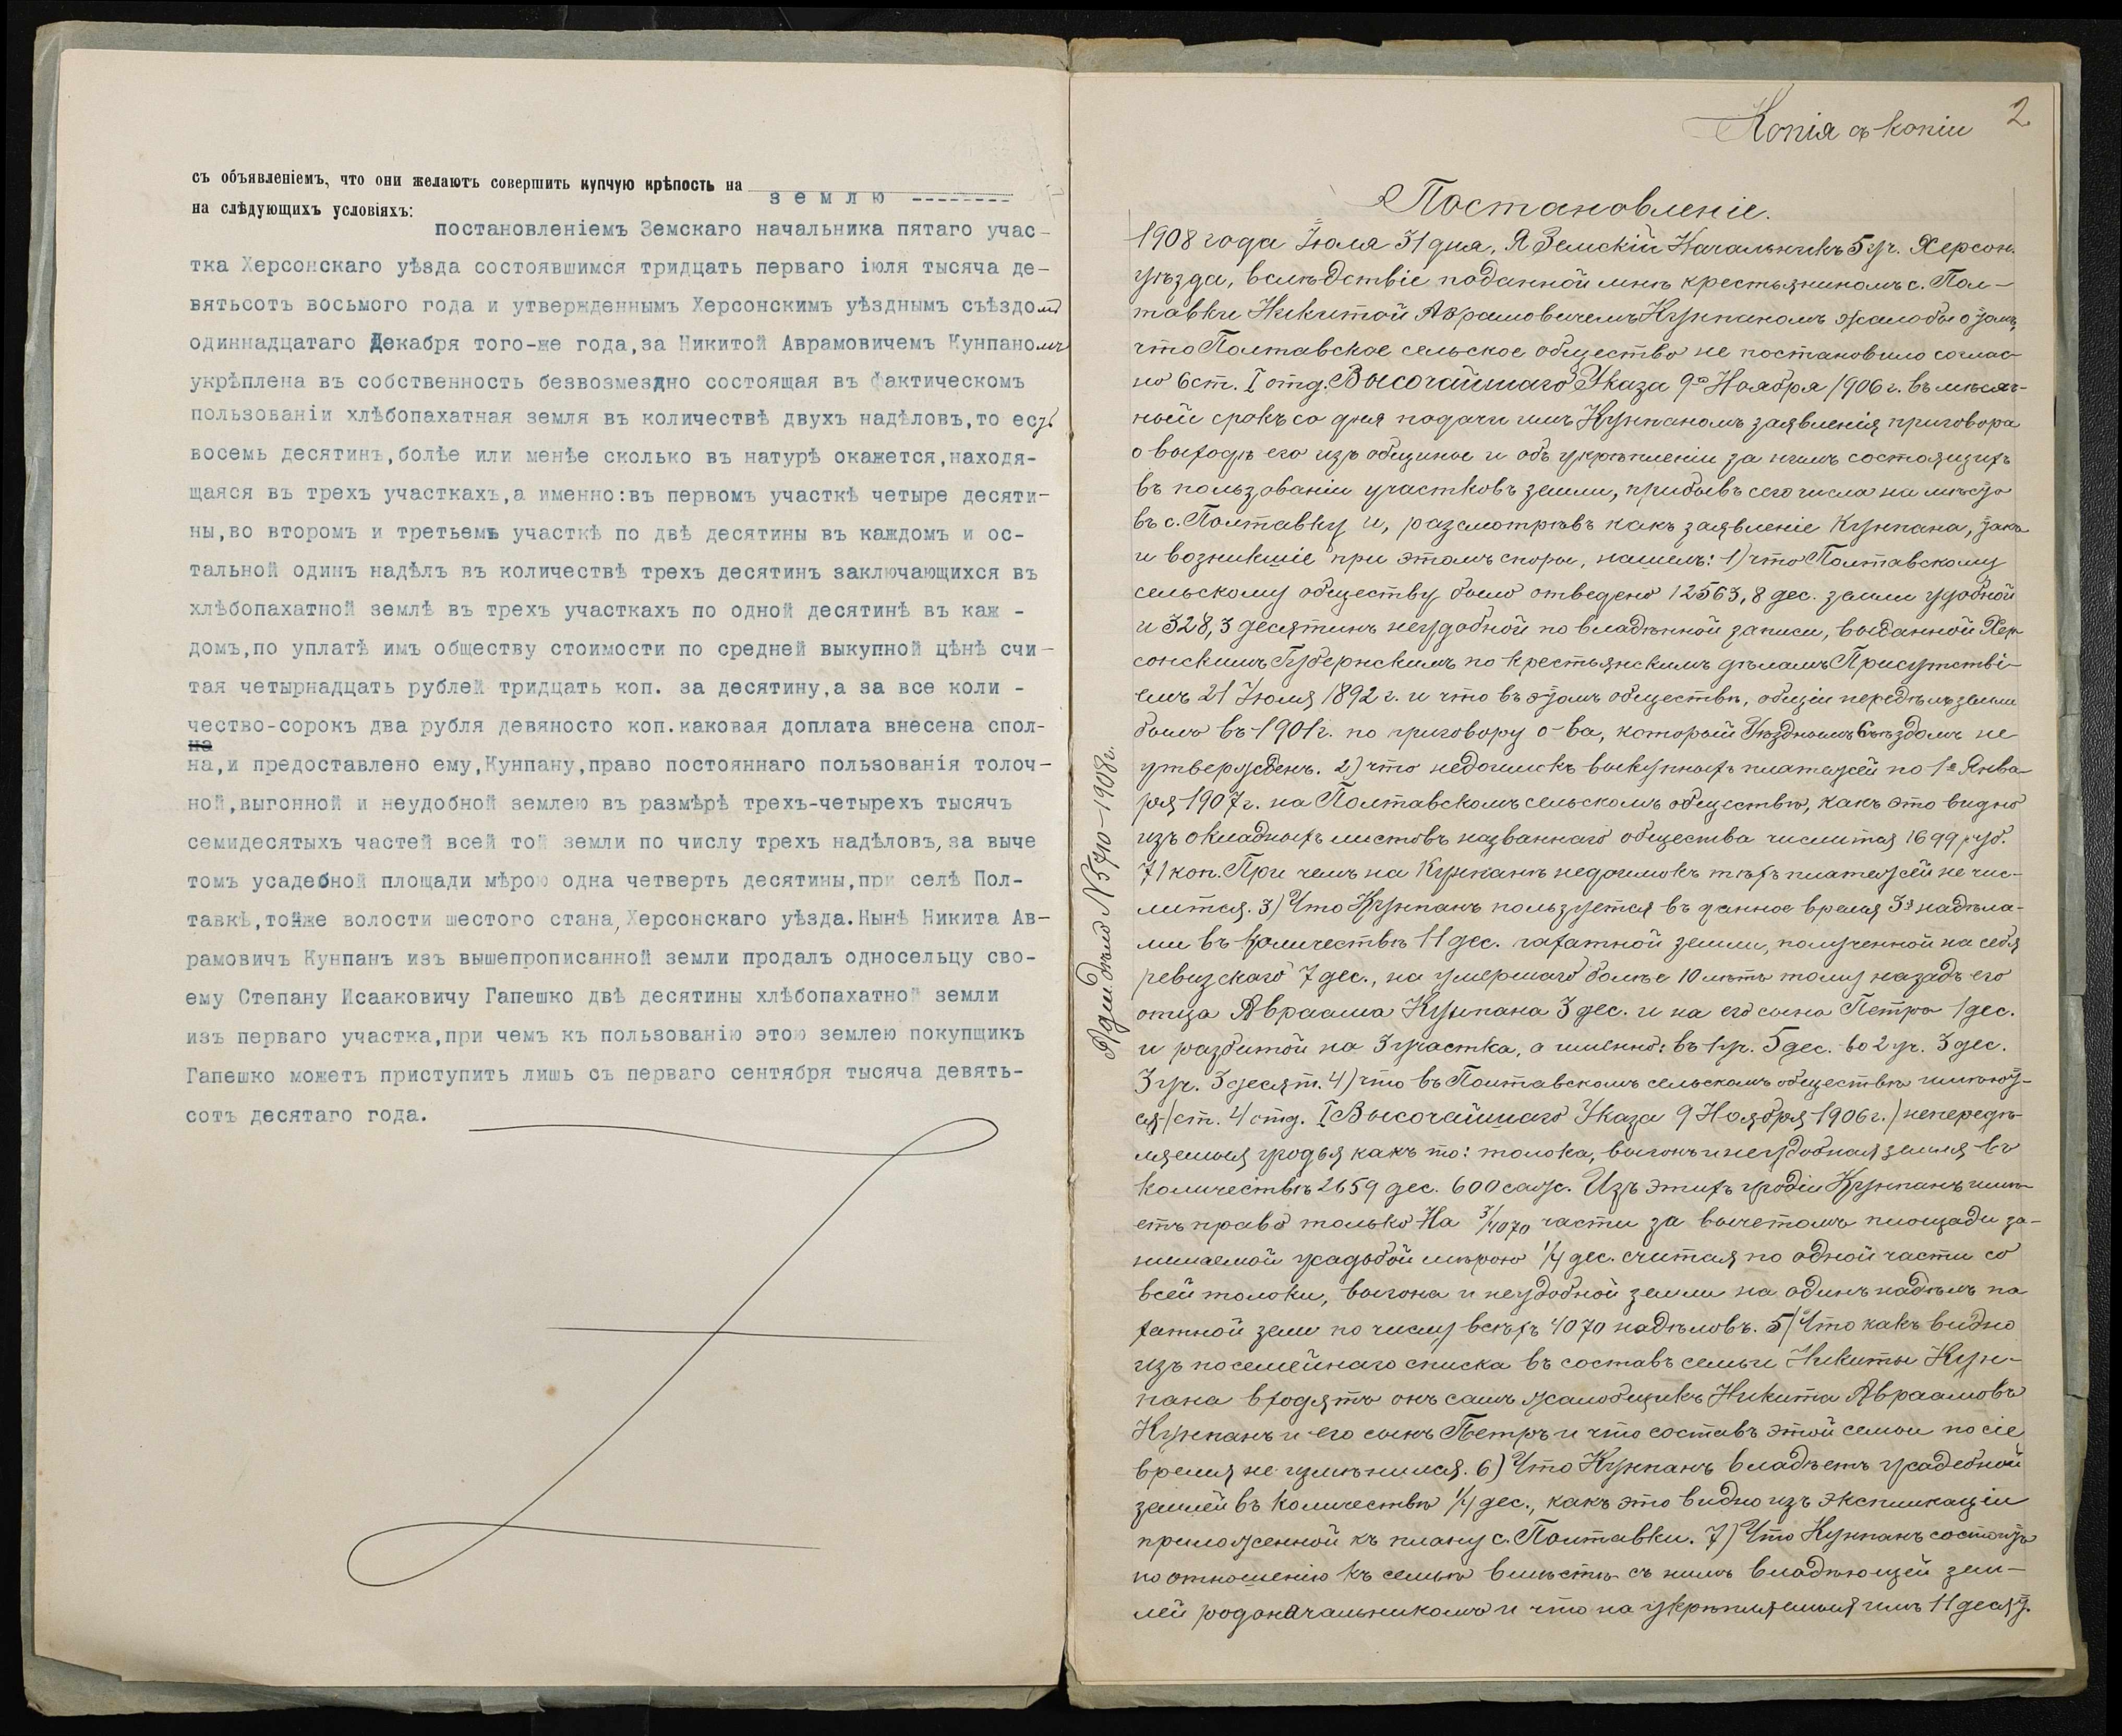 съ объявленіемъ, что они желаютъ совершить купчую крѣпость на
землю --------
на слѣдующихъ условіяхъ:
постановленіемъ Земскаго начальника пятаго учас-
тка Херсонскаго уѣзда состоявшимся тридцать перваго іюля тысяча де-
вятьсотъ восьмого года и утвержденнымъ Херсонскимъ уѣзднымъ съѣздомъ
одиннадцатаго Декабря того-же года,за Никитой Аврамовичемъ Кунпаномъ
укрѣплена въ собственность безвозмездно состоящая въ фактическомъ
пользованіи хлѣбопахатная земля въ количествѣ двухъ надѣловъ,то есть
восемь десятинъ,болѣе или менѣе сколько въ натурѣ окажется,находя-
щаяся въ трехъ участкахъ,а именно:въ первомъ участкѣ четыре десяти-
ны,во второмъ и третьемъ участкѣ по двѣ десятины въ каждомъ и ос-
тальной одинъ надѣлъ въ количествѣ трехъ десятинъ заключающихся въ
хлѣбопахатной землѣ въ трехъ участкахъ по одной десятинѣ въ каж -
домъ,по уплатѣ имъ обществу стоимости по средней выкупной цѣнѣ счи-
тая четырнадцать рублей тридцать коп. за десятину,а за все коли -
чество-сорокъ два рубля девяносто коп.каковая доплата внесена спол-
на
на,и предоставлено ему,Кунпану,право постояннаго пользованія толоч-
ной,выгонной и неудобной землею въ размѣрѣ трехъ-четырехъ тысячъ
семидесятыхъ частей всей той земли по числу трехъ надѣловъ,за выче
томъ усадебной площади мѣрою одна четверть десятины,при селѣ Пол-
тавкѣ,тойже волости шестого стана,Херсонскаго уѣзда.Нынѣ Никита Ав-
рамовичъ Кунпанъ изъ вышепрописанной земли продалъ односельцу сво-
ему Степану Исааковичу Гапешко двѣ десятины хлѣбопахатной земли
изъ перваго участка,при чемъ къ пользованію этою землею покупщикъ
Гапешко можетъ приступить лишь съ перваго сентября тысяча девять-
сотъ десятаго года.
2
Копія съ копіи
Постановленіе.
1908 года Іюля 31 дня, Я Земскій Начальникъ 5 уч. Херсон.
уѣзда, вслѣдствіе поданной мнѣ крестьяниномъ с. Пол-
тавки Никитой Аврамовичемъ Кунпаномъ жалобы о томъ,
что Полтавское сельское общество не постановило соглас-
но 6 ст. I отд. Высочайшаго Указа 9го Ноября 1906 г. въ мѣсяч-
ный срокъ со дня подачи имъ Кунпаномъ заявленія приговора
о выходѣ его изъ общины и объ укрѣпленіи за нимъ состоящихъ
въ пользованіи участковъ земли, прибывъ сего числа на мѣсто
въ с. Полтавку и, разсмотрѣвъ какъ заявленіе Кунпана, такъ
и возникшіе при этомъ споры, нашелъ: 1) что Полтавскому
сельскому обществу было отведено 12563,8 дес. земли удобной
и 328,3 десятинъ неудобной по владѣнной записи, выданной Хер-
сонскимъ Губернскимъ по крестьянскимъ дѣламъ Присутстві-
емъ 21 Іюля 1892 г. и что въ этомъ обществѣ, общій передѣлъ земли
былъ въ 1901 г. по приговору о-ва, который Уѣзднымъ Съѣздомъ не
утвержденъ. 2) что недоимокъ выкупныхъ платежей по 1е Янва-
ря 1907 г. на Полтавскомъ сельскомъ обществѣ, какъ это видно
изъ окладныхъ листовъ названнаго общества числится 1699 руб.
71 коп. При чемъ на Кунпанѣ недоимокъ тѣхъ платежей не чис-
лится. 3) Что Кунпанъ пользуется въ данное время 3я надѣла-
ми въ количествѣ 11 дес. пахатной земли, полученной на себя
ревизскаго 7 дес., на умершаго болѣе 10 лѣтъ тому назадъ его
отца Авраама Кунпана 3 дес. и на его сына Петра 1 дес.
и разбитой на 3 участка, а именно: въ 1 уч. 5 дес. во 2 уч. 3 дес.
3 уч. 3 десят. 4) что въ Полтавскомъ сельскомъ обществѣ имѣют-
ся (ст. 4 отд. I Высочайшаго Указа 9 Ноября 1906 г.) непередѣ-
ляемыя угодья какъ то: толока, выгонъ и неудобная земля въ
количествѣ 2659 дес. 600 саж. Изъ этихъ угодій Кунпанъ имѣ-
етъ право только На 3/4070 части за вычетомъ площади за-
нимаемой усадьбой мѣрою 1/4 дес. считая по одной части со
всей толоки, выгона и неудобной земли на одинъ надѣлъ па
хатной земли по числу всѣхъ 4070 надѣловъ. 5) Что какъ видно
изъ посемейнаго списка въ составъ семьи Никиты Кун-
пана входятъ онъ самъ жалобщикъ Никита Авраамовъ
Кунпанъ и его сынъ Петръ и что составъ этой семьи по сіе
время не измѣнился. 6) Что Кунпанъ владѣетъ усадебной
землей въ количествѣ 1/4 дес., какъ это видно изъ экспликаціи
приложенной къ плану с. Полтавки. 7) Что Кунпанъ состоитъ
по отношенію къ семьѣ вмѣстѣ съ нимъ владѣющей зем-
лей родоначальникомъ и что на укрѣпляемыя имъ 11 десят.
№ 5710-1908 г.